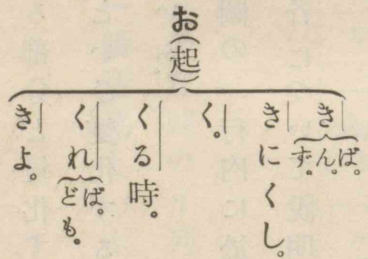 お(起)
き ば。 ん。 ず。
きにくし。
く。
くる時。
くれ ば。 ども。
きよ。